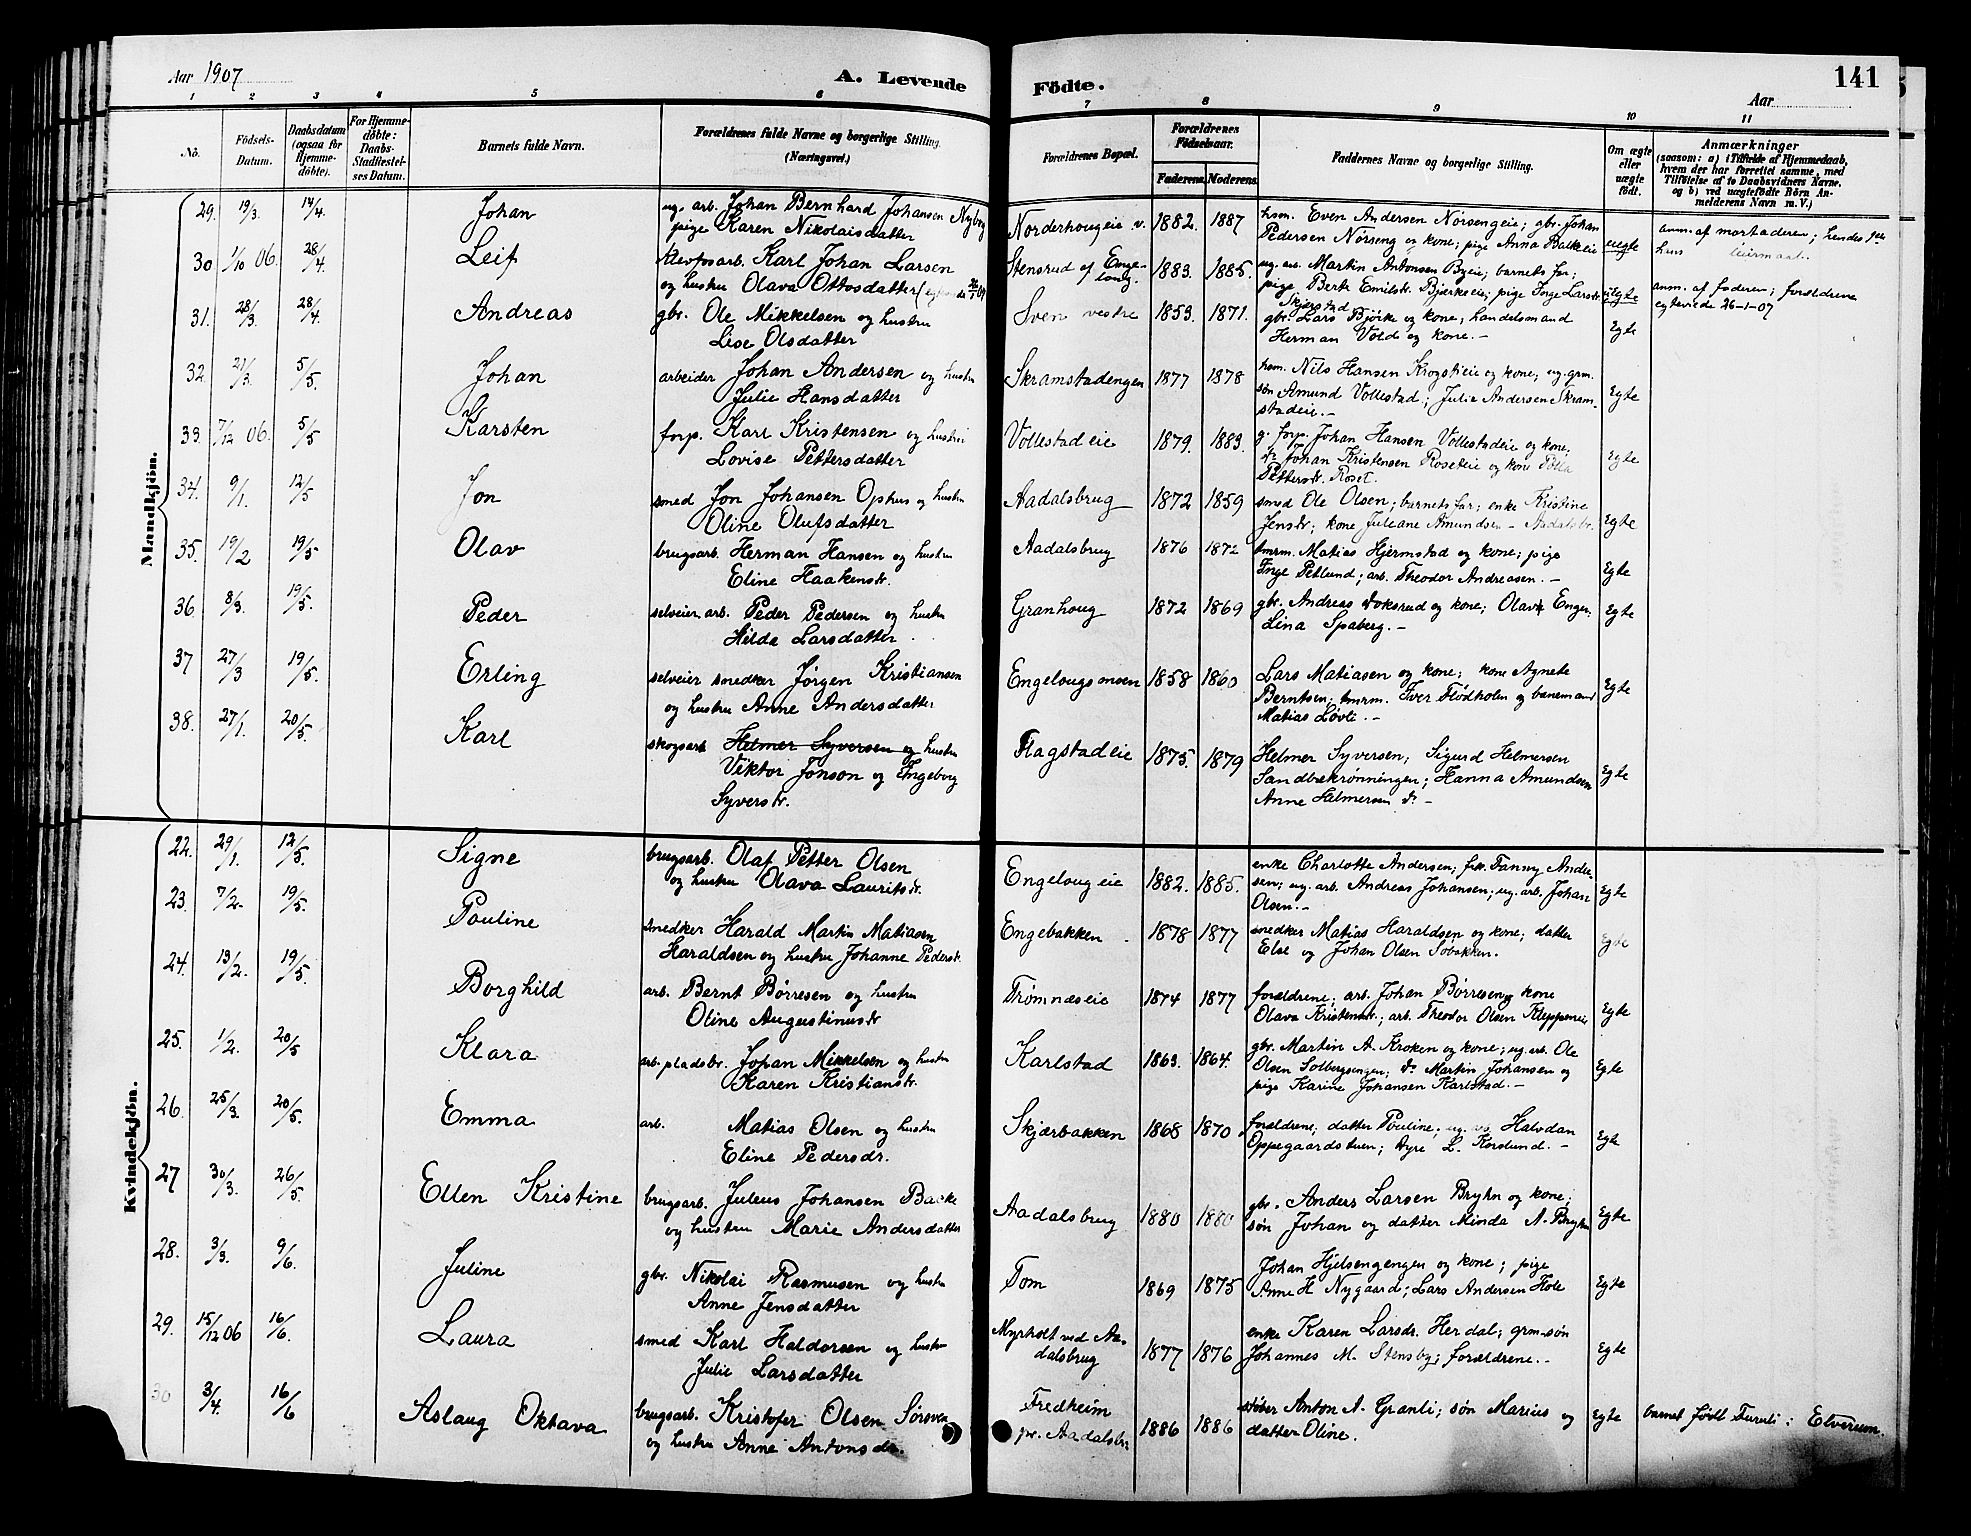 Aar 1907
A. Levende
Födte.
141
Aar
1 2 3 4 5 6 7 8 9 10 11
No.
Födsels-
Datum.
Daabsdatum
(ogsaa for
Hjemme-
döbte).
For Hjemme-
döbte:
Daabs-
Stadfestel-
ses Datum.
Barnets fulde Navn.
Forældrenes fulde Navne og borgerlige Stilling.
(Næringsvei.)
Forældrenes Bopæl.
Forældrenes
Födselsaar.
Faderens. Moderens.
Faddernes Navne og borgerlige Stilling.
Om ægte
eller
uægte
født.
Anmærkninger
(saasom: a) i Tilfælde af Hjemmedaab,
hvem der har forrettet samme, med
Tilföielse af to Daabsvidners Navne.
og b) ved uægtefödte Börn An-
melderens Navn m. V.)
Mandkjön.
29. 19/3. 14/4. Johan
ug. arb. Johan Bernhard Johansen Nyborg
pige Karen Nikolaisdatter
Norderhougeie v. 1882. 1887
hsm. Even Andersen Nörsengeie; gbr. Johan
Pedersen Nörseng og kone; pige Anna Bakkeie
uegte
anm. af morfaderen; hendes 1ste
hans leiermaal.
30 1/10 06. 28/4. Leif
Karl Johan Larsen
og hustru Olava Ottosdatter
Stensrud af Enge-
loug. 1883. 1885.
ug. arb. Martin Antonsen Byeie; barnets far;
pige Berte Emilsdr. Bjerkeeie; pige Inga Larsdr.
Skjerstad
uegte
anm. af faderen; forældrene
egteviede 26-1-07
31. 28/3. 28/4. Andreas
gbr. Ole Mikkelsen og hustru
Lise Olsdatter
Sven vestre 1853. 1871.
gbr. Lars Bjørke og kone, handelsmand
Herman Vold og kone. -
Egte
32. 21/3. 5/5. Johan
arbeider Johan Andersen og hustru
Julie Hansdatter
Skramstadengen 1877 1878
hsm. Nils Hansen Krogstieie og kone; ug. grm.
søn Amund Vollestad; Julie Andersen Skram-
stadeie. -
Egte
33. 7/12 06. 5/5 Karsten
forp. Karl Kristensen og hustru
Lovise Pettersdatter
Vollestadeie 1879. 1883.
g. forp. Johan Hansen Vollestadeie og kone;
do Johan Kristensen Roseteie og kone
Pettersdr. Roset.
Egte
34. 9/1. 12/5 Jon
smed Jon Johansen Ophus og hustru
Oline Olufsdatter
Aadalsbrug 1872 1859
smed Ole Olsen; barnets far; enke Kristine
Jensdr; kone Juleane Amundsen - Aadalsbr.
Egte
35. 19/2 19/5 Olav
brugsarb. Herman Hansen og hustru
Eline Haakensdr.
Aadalsbrug 1876 1872
tmrm. Matias Hjermstad og kone; pige
Inge Petlund; arb. Theodor Andreasen. -
Egte
36 8/3. 19/5. Peder
selveier, arb. Peder Pedersen og hustru
Hilda Larsdatter
Granhoug 1872 1869
gbr. Andreas Doksrud og kone; Olava Engen.
Lina Spaberg. -
Egte
37 27/3 19/5. Erling
selveier snedker Jørgen Kristiansen
og hustru Anne Andersdatter
Engelougsmoen 1858 1860
Lars Matiasen og kone; kone Agnete
Berntsen; tmrm. Iver Flødholm og banemand
Matias Løvli. -
Egte
38. 27/1. 20/5. Karl
skogsarb. Helmer Syversen og hustru
Viktor Jonson og Ingeborg
Syversdr.
Flagstadeie 1875. 1879
Helmer Syversen; Sigurd Helmersen
Sandbækrønningen; Hanna Amundsen
Anne Helmersen do -
Egte
Kvindekjön.
22. 29/1. 12/5. Signe
brugsarb. Olaf Petter Olsen
og hustru Olava Lauritsdr.
Engelougeie 1882. 1885.
enke Charlotte Andersen; frk. Fanny Ander-
sen; ug. arb. Andreas Johansen; ug. arb. Johan
Olsen. -
Egte
23. 7/2. 19/5. Pouline
snedker Harald Martin Matiasen
Haraldsen og hustru Johanne Pedersdr.
Engebakken 1878 1877
snedker Matias Haraldsen og kone; datter
Else og Johan Olsen Søbakken.
Egte
24. 13/2. 19/5. Borghild
arb. Bernt Børresen og hustru
Oline Augustinusdr
Trømnæseie 1874 1877
forældrene; arb. Johan Børresen og kone
Olava Kristensdr; arb. Theodor Olsen Kleppeneie
Egte
25. 1/2. 20/5 Klara
arb. pladsbr. Johan Mikkelsen og hustru
Karen Kristiansdr.
Karlstad 1863. 1864.
gbr. Martin A. Kroken og kone; ug. arb. Ole
Olsen Solbergsengen; do Martin Johansen og
pige Karine Johansen Karlstad. -
Egte
26. 25/3. 20/5. Emma
arb. Matias Olsen og hustru
Eline Pedersdr.
Skjærbakken 1868 1870
forældrene; datter Pouline; ug. arb. Halvdan
Oppegaardstuen; Dyre L. Korslund. -
Egte
27 30/3. 26/5. Ellen Kristine
brugsarb. Juleus Johansen Bakke
og hustru Marie Andersdatter
Aadalsbrug 1880 1880
gbr. Anders Larsen Bryhn og kone;
søn Johan og datter Minda A. Bryhn
Egte
28. 3/3. 9/6. Juline
gbr. Nikolai Rasmusen og hustru
Anne Jensdatter
Tom 1869 1875
Johan Hjelsengengen og kone; pige
Anne H Nygaard; Lars Andersen Hole
Egte
29. 15/12 06 16/6. Laura
smed Karl Haldorsen og hustr
Julie Larsdatter
Myrholt ved Aa-
dalsbrug 1877 1876
enke Karen Larsdr. Herdal; grm.søn
Johannes M. Stensby; forældrene. -
Egte
30 3/4. 16/6 Aslaug Oktava
brugsarb. Kristofer Olsen Sørsveen
og hustru Anne Antonsdr.
Fredheim
pr. Aadalsbr. 1886 1886
Anton A. Granli; søn Marius og
datter Oline.
Egte
barnet født Furuli i Elverum.